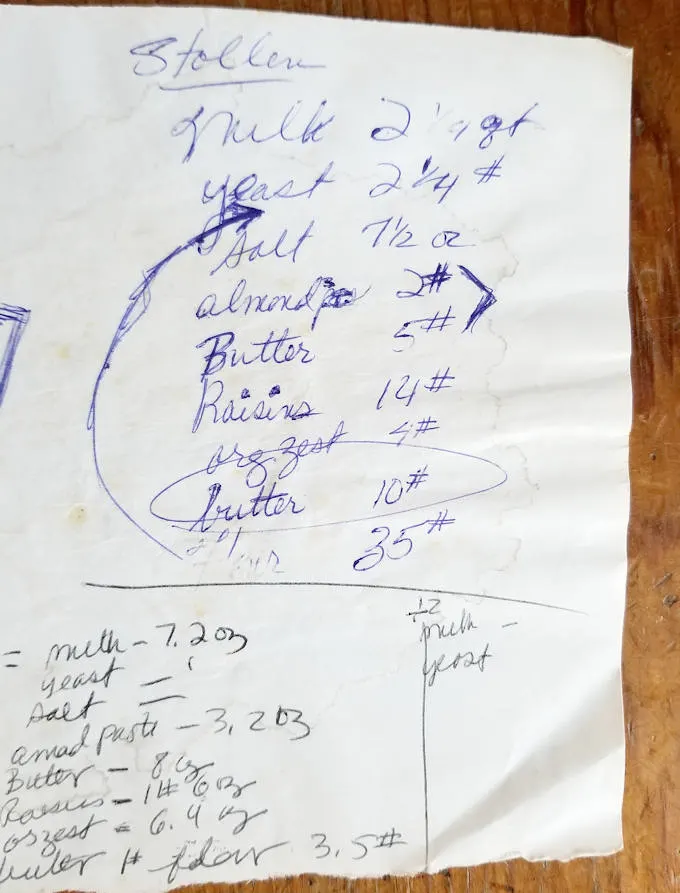 Stollen
milk 2 1/4 qt
yeast 2 1/4 #
salt 7 1/2 oz
almond 2#
Butter 5#
Raisins 14#
org. zest 4#
butter 10#
35#
= milk - 7.2 oz
yeast
salt =
amad paste - 3.2 oz
Butter - 8 oz
Raisins = 1# 6 oz
orzest = 6.4 oz
butter 1# flour 3.5#
÷12
milk -
yeast